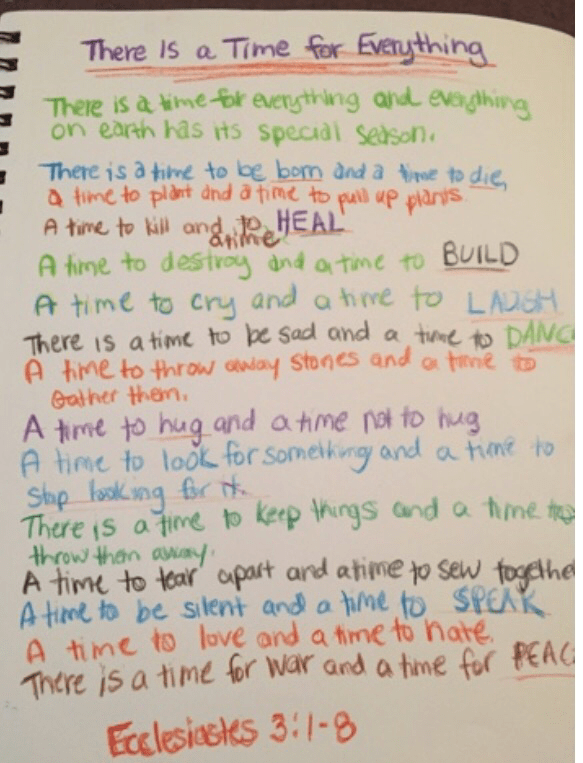 There Is a Time for Everything
There is a time for everything and everything
on earth has its special season.
There is a time to be born and a time to die,
a time to plant and a time to pull up plants.
A time to kill and a time to HEAL
A time to destroy and a time to BUILD
A time to cry and a time to LAUGH
There is a time to be sad and a time to DANC
A time to throw away stones and a time to
Gather them.
A time to hug and a time not to hug
A time to look for something and a time to
stop looking for it.
There is a time to keep things and a time to
throw then away.
A time to tear apart and a time to sew togethe
A time to be silent and a time to SPEAK
A time to love and a time to hate.
There is a time for war and a time for PEAC
Ecclesiastes 3:1-8